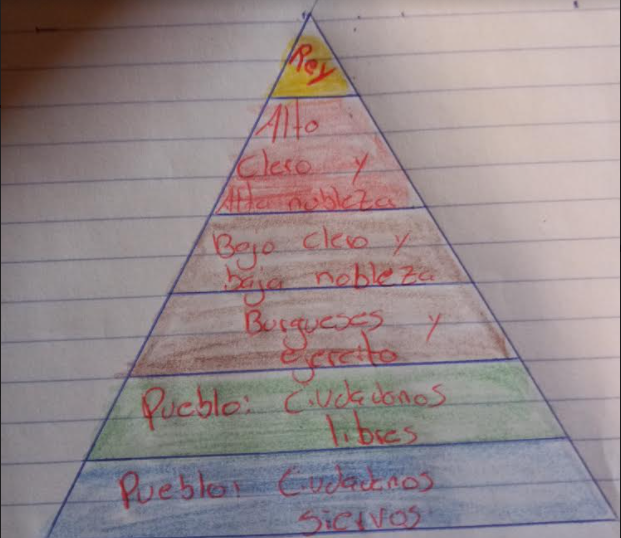 Rey
Alto
Clero y
Alta nobleza
Bajo clero y
baja nobleza
Burgueses y
ejercito
Pueblo: Ciudadanos
libres
Pueblo: Ciudadanos
siervos